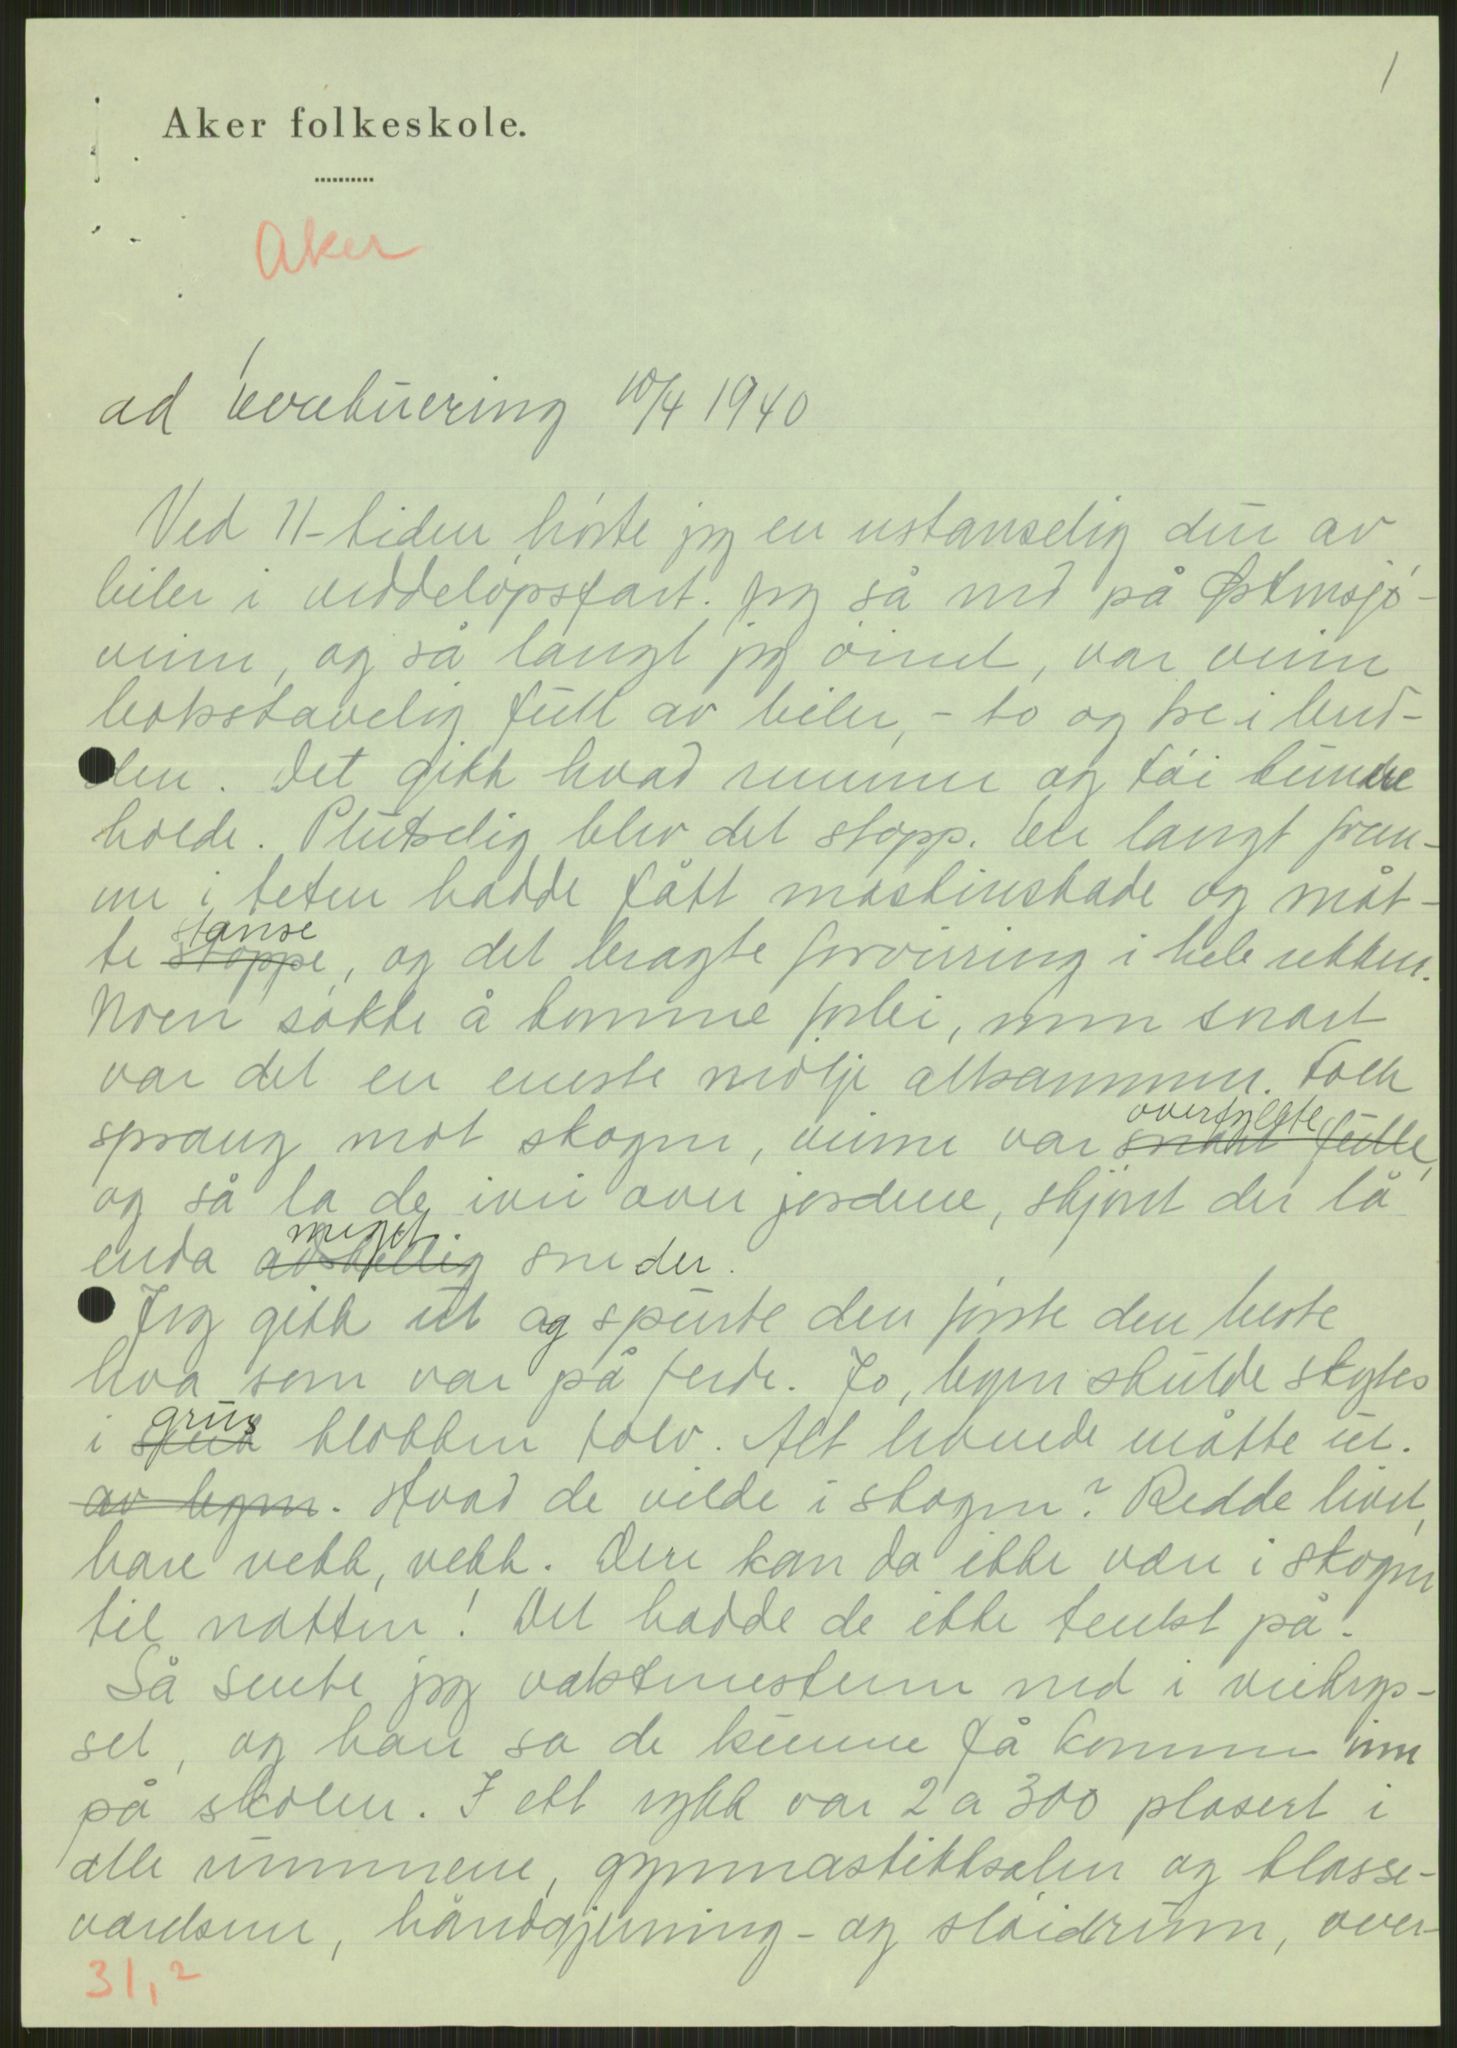 1
Aker folkeskole.
Aker
ad evakuering 10/4 1940
Ved 11-tiden hørte jeg en ustanselig dur av
biler i veddeløpsfart. Jeg så ned på Østensjø-
veien, og så langt jeg øinet, var veien
bokstavelig full av biler, - to og tre i bred-
den. Det gikk hvad remmer og tøi kunne
holde. Plutselig blev det stopp. En langt frem-
me i teten hadde fått maskinskade og måt-
te stoppe stanse, og det bragte forvirring i hele rekken.
Noen søkte å komme forbi, men snart
var det en eneste mølje altsammen. Folk
sprang mot skogen, veiene var snart fulle overfylte,
og så la de ivei over jordene, skjønt der lå
enda adskillig meget sne der.
Jeg gikk ut og spurte den første den beste
hva som var på ferde. Jo, byen skulde skytes
i grus klokken tolv. Alt levende måtte ut.
av byen. Hvad de vilde i skogen? Redde livet,
bare vekk, vekk. Dere kan da ikke være i skogen
til natten! Det hadde de ikke tenkt på.
Så sente jeg vaktmesteren ned i veikrys-
set, og han sa de kunne få komme inn
på skolen. I ett rykk var 2 a 300 plasert i
alle rummene, gymnastikksalen og klasse-
værelsene, håndgjerning- og sløidrum, over-
31,2